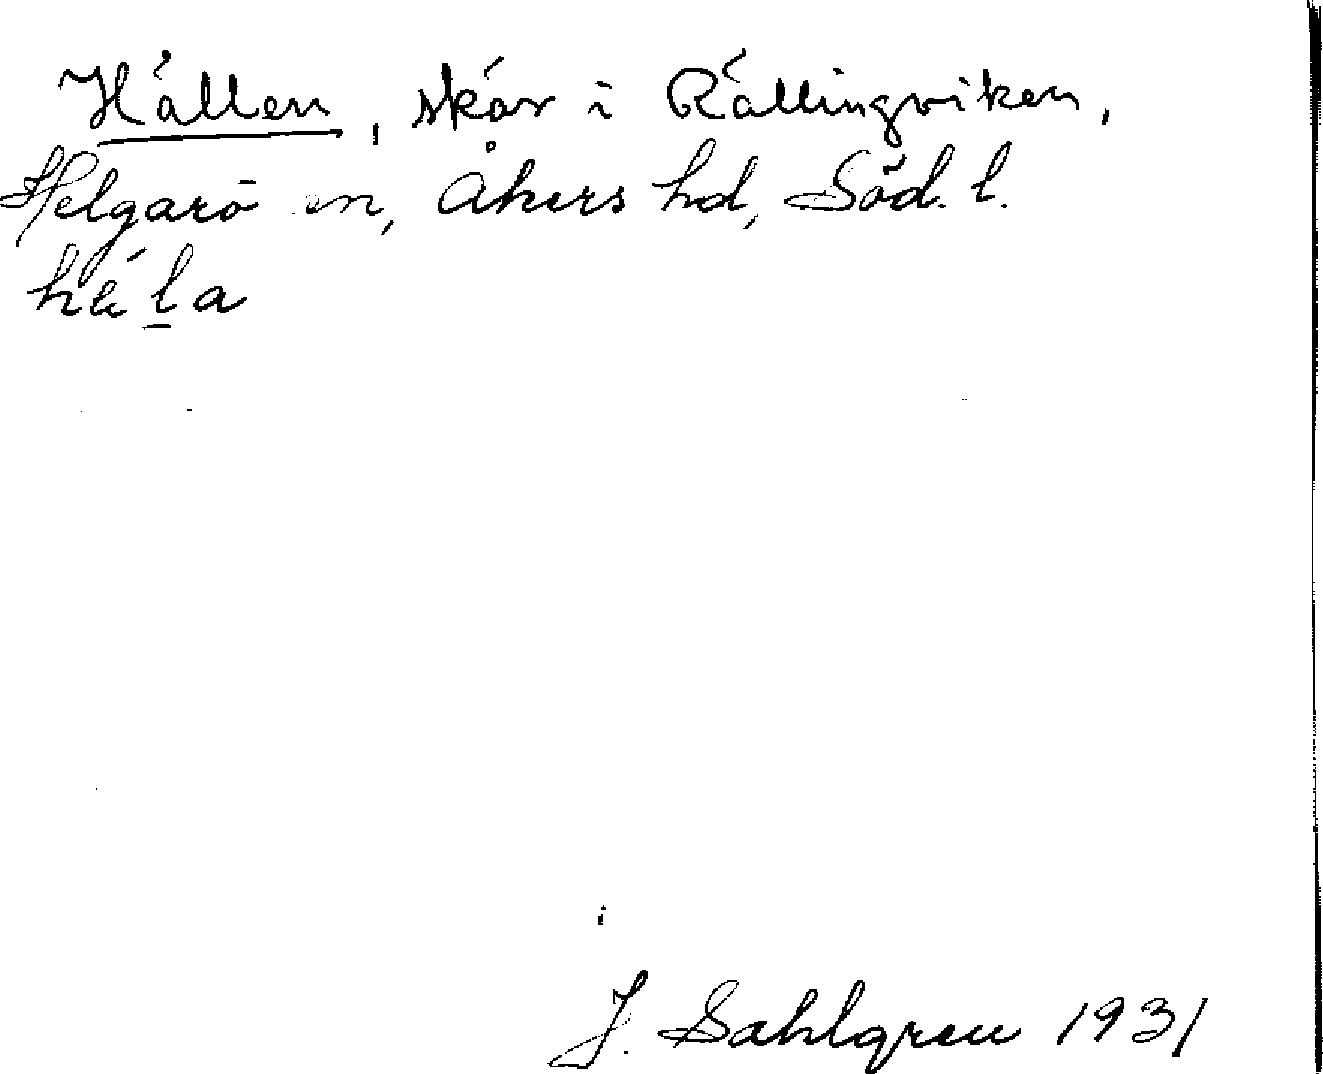 Hällen, skär i Rällingviken,
Helgarö sn, Åkers hd, Söd. l.
J. Sahlgren 1931